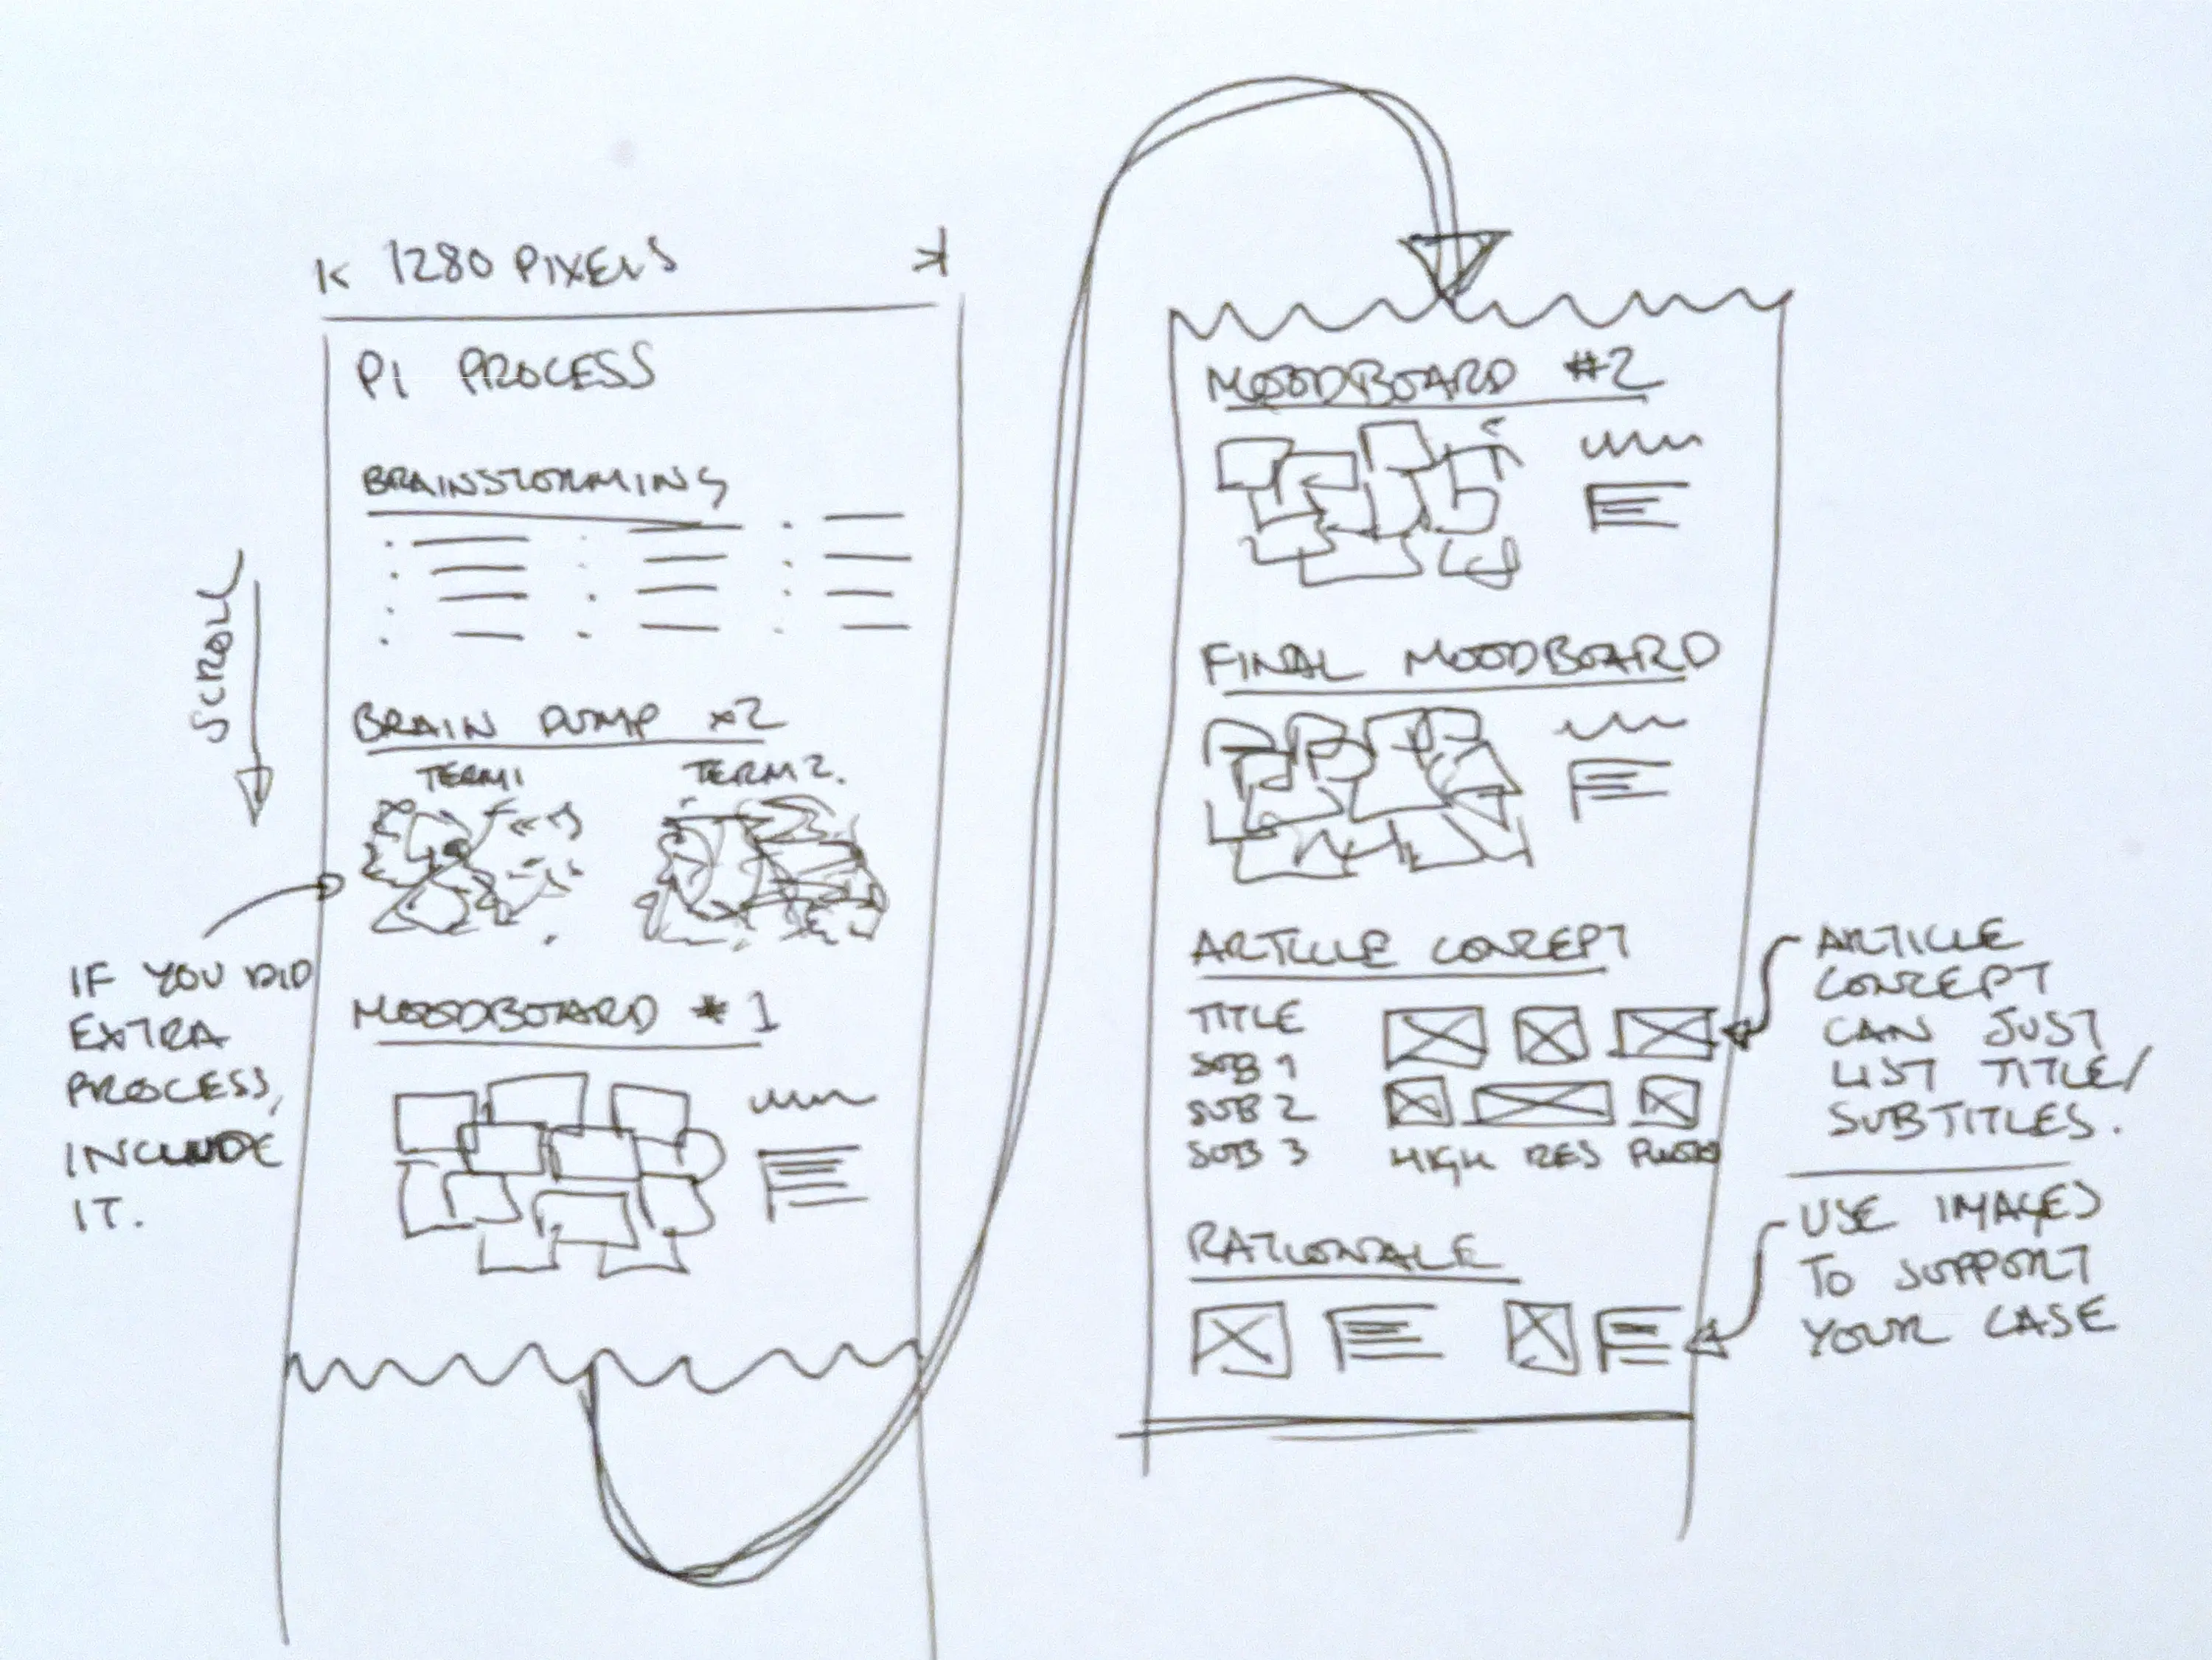 1280 PIXELS
P1 PROCESS
BRAINSTORMING
SCROLL
BRAIN DUMP x2
TERM 1 TERM 2.
IF YOU DID
EXTRA
PROCESS,
INCLUDE
IT.
MOODBOARD #1
MOODBOARD #2
FINAL MOODBOARD
ARTICLE CONCEPT
TITLE
SUB 1
SUB 2
SUB 3
HIGH RES
ARTICLE
CONCEPT
CAN JUST
LIST TITLE/
SUBTITLES.
RATIONALE
USE IMAGES
TO SUPPORT
YOUR CASE